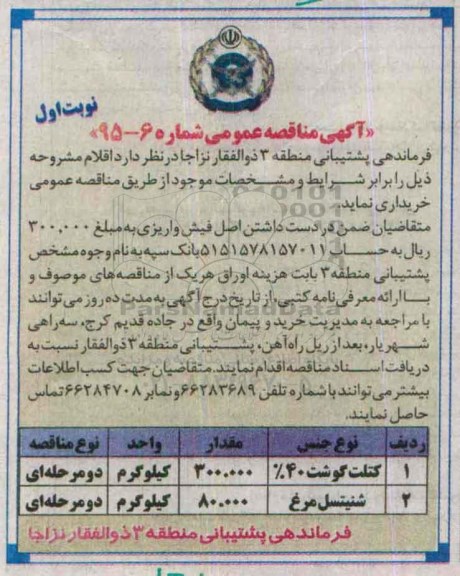 نوبت اول
«آگهی مناقصه عمومی شماره ۶-۹۵»
فرماندهی پشتیبانی منطقه ۳ ذوالفقار نزاجا در نظر دارد اقلام مشروحه
ذیل را برابر شرایط و مشخصات موجود از طریق مناقصه عمومی
خریداری نماید.
متقاضیان ضمن در دست داشتن اصل فیش واریزی به مبلغ ۳۰۰,۰۰۰
ریال به حساب ۵۱۵۱۵۷۸۱۵۷۰۱۱ بانک سپه به نام وجوه مشخص
پشتیبانی منطقه ۳ بابت هزینه اوراق هریک از مناقصه‌های موصوف و
با ارائه معرفی‌نامه کتبی، از تاریخ درج آگهی به مدت ده روز می‌توانند
با مراجعه به مدیریت خرید و پیمان واقع در جاده قدیم کرج، سه‌راهی
شهریار، بعد از ریل راه‌آهن، پشتیبانی منطقه ۳ ذوالفقار نسبت به
دریافت اسناد مناقصه اقدام نمایند. متقاضیان جهت کسب اطلاعات
بیشتر می‌توانند با شماره تلفن ۶۶۲۸۳۶۸۹ و نمابر ۶۶۲۸۴۷۰۸ تماس
حاصل نمایند.
ردیف نوع جنس مقدار واحد نوع مناقصه
۱ کتلت گوشت ۴۰٪ ۳۰۰.۰۰۰ کیلوگرم دو مرحله‌ای
۲ شنیتسل مرغ ۸۰.۰۰۰ کیلوگرم دو مرحله‌ای
فرماندهی پشتیبانی منطقه ۳ ذوالفقار نزاجا